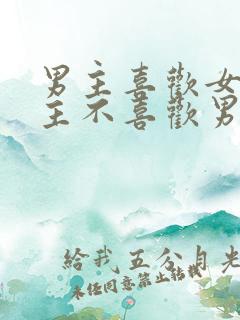 男主喜歡女
主不喜歡男
給我五分自光
未任同意禁止转载